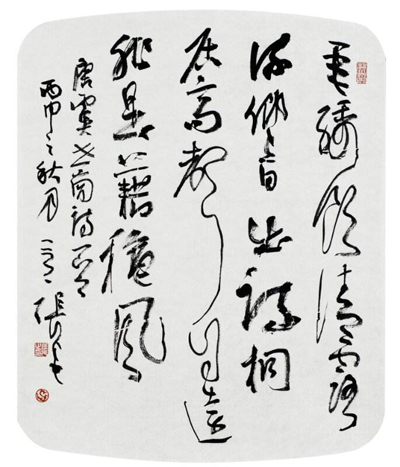 垂緌飲清露
流響出疏桐
居高聲自遠
非是藉秋風
唐虞世南詩一首
丙申之秋月
張